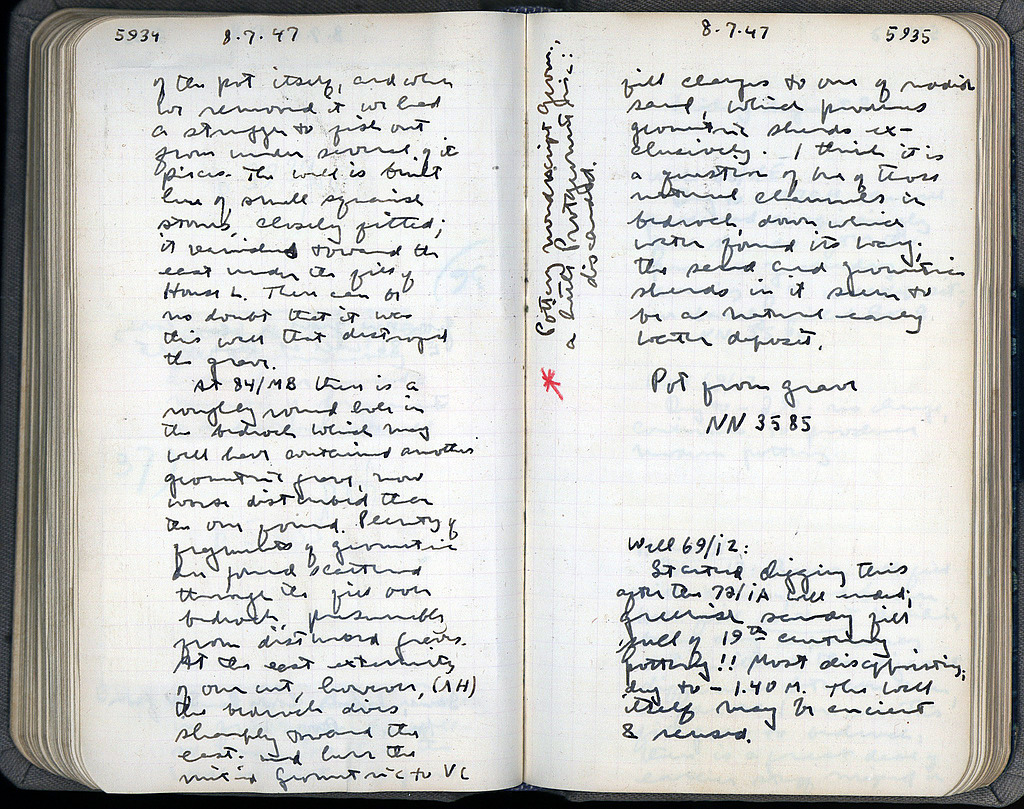 5934
8.7.47
of the pot itself, and when
we removed it we had
a struggle to fish out
from under several of its
pieces. The wall is built
line of small squarish
stones, closely fitted;
it vanished toward the
east under the fill of
House L. There can be
no doubt that it was
this wall that destroyed
the grave.
At 84/MB there is a
roughly round hole in
the bedrock which may
well have contained another
geometric grave, now
worse disturbed than
the one found. Plenty of
fragments of geometric
are found scattered
through the fill over
bedrock, presumably
from disturbed graves.
At the east extremity
of our cut, however, (ΛH)
the bedrock dives
sharply toward the
east. and here the
mixed Geometric to VC
8.7.47
5935
fill changes to one of reddish
sand, which produces
geometric sherds ex-
clusively. I think it is
a question of one of those
natural channels in
bedrock, down which
water found its way;
the sand and geometric
sherds in it seem to
be a natural early
water deposit.
Pottery nondescript Geom.:
a little Protgeometric:
discarded.
*
Pot from grave
NN 3585
Well 69/ΙΖ:
Started digging this
after the 72/ΙΑ well ended;
greenish sandy fill
full of 19th century
pottery!! Most disappointing;
dug to – 1.40 M. The well
itself may be ancient
& reused.